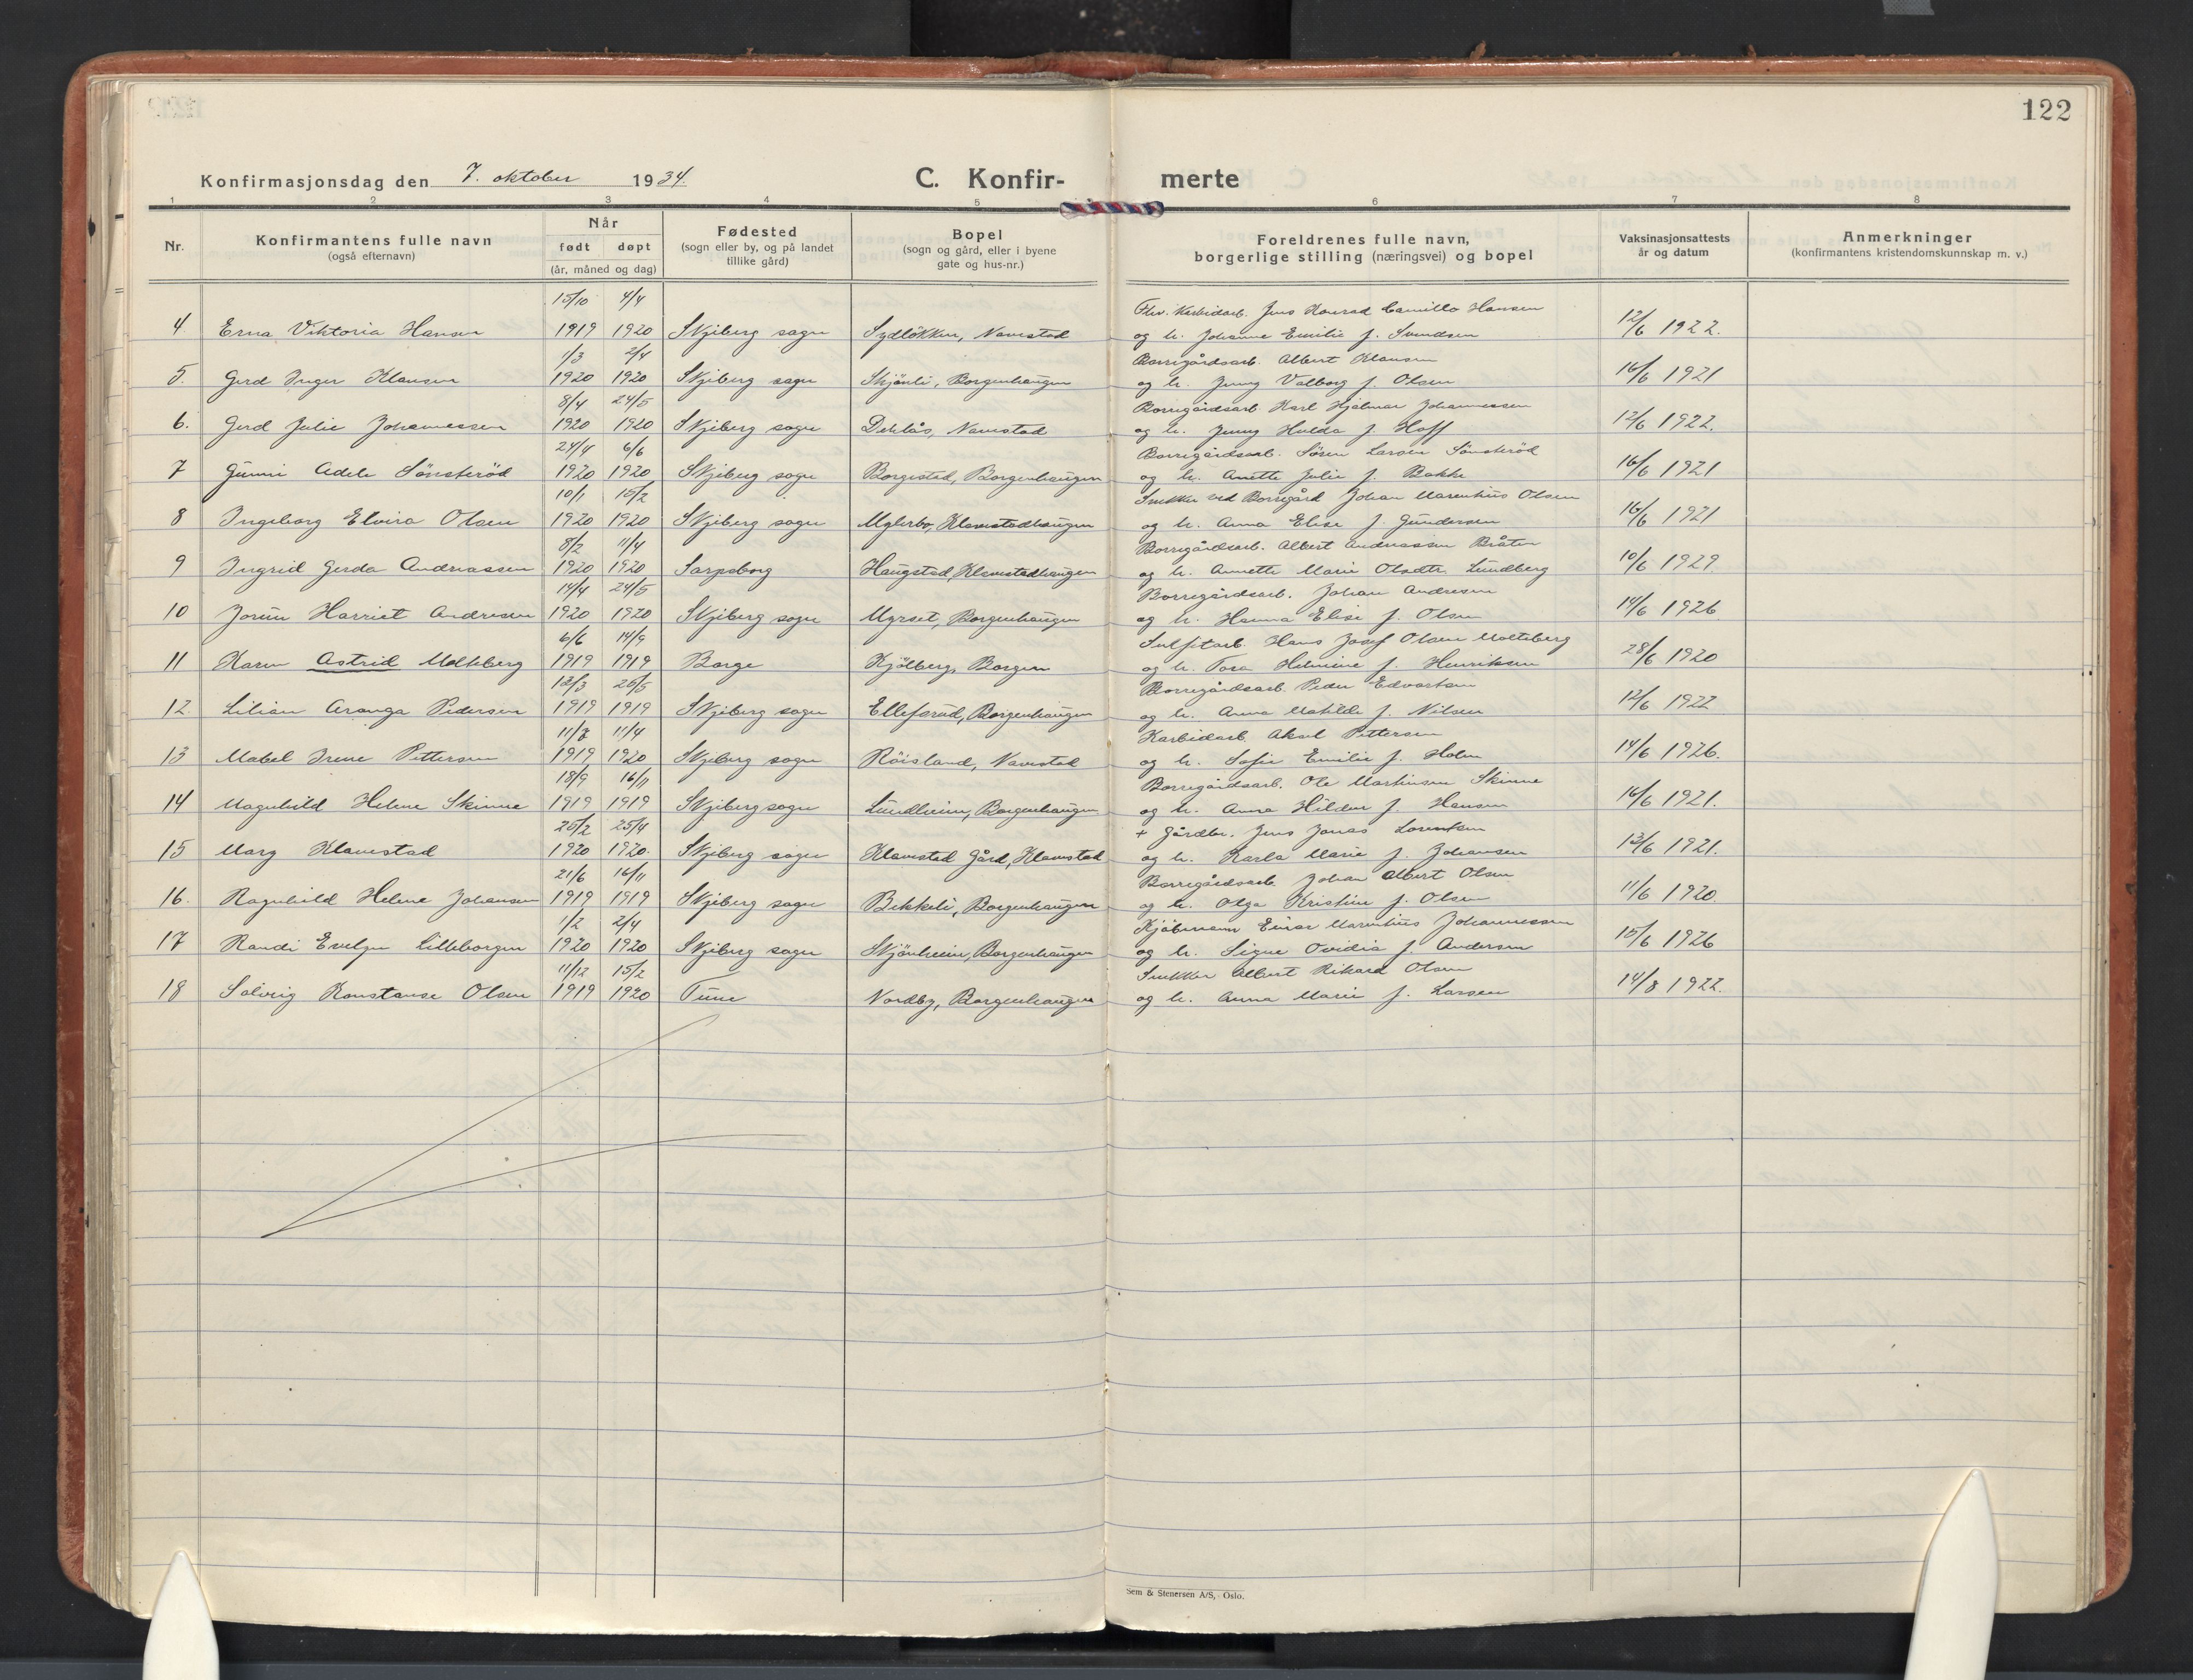 122
Konfirmasjonsdag den 7. oktober 1934.
C. Konfir- merte
1 2 3 4 5 6 7 8
Nr.
Konfirmantens fulle navn
(også efternavn)
Når
født døpt
(år, måned og dag)
Fødested
(sogn eller by, og på landet
tillike gård)
Bopel
(sogn og gård, eller i byene
gate og hus-nr.)
Foreldrenes fulle navn,
borgerlige stilling (næringsvei) og bopel
Vaksinasjonsattests
år og datum
Anmerkninger
(konfirmantens kristendomskunnskap m. v.)
15/10 4/4 Jens Konrad Camillo Hansen
4. Erna Viktoria Hansen 1919 1920 Skjeberg sogn Sydløkken, Navestad og h. Johanne Emilie f. Svendsen 12/6 1922.
1/3 2/4 Borregårdsarb. Albert Klausen
5. Gerd Inger Klausen 1920 1920 Skjeberg sogn Skjønli, Borgenhaugen og h. Jenny Valborg f. Olsen 16/6 1921
8/4 24/5 Borregårdsarb. Karl Hjalmar Johannessen
6. Gerd Julie Johannessen 1920 1920 Skjeberg sogn Dekkås, Navestad og h. Jenny Hulda f. Hoff 12/6 1922.
24/4 6/6 Borregårdsarb. Søren Larsen Sønsterød
7 Gunni Adele Sønsterød 1920 1920 Skjeberg sogn Borgestad, Borgenhaugen og h. Anette Julie f. Bakke 16/6 1921
10/1 15/2 Snekker ved Borregård Johan Marentius Olsen
8 Ingeborg Elvira Olsen 1920 1920 Skjeberg sogn Myrerbo, Klavestadhaugen og h. Anna Elise f. Gundersen 16/6 1921
8/2 11/4 Borregårdsarb. Albert Andreassen Bråten
9 Ingrid Gerda Andreassen 1920 1920 Sarpsborg Haugstad, Klavestadhaugen og h. Annette Marie Olsdtr. Lundberg 10/6 1929.
14/4 24/5 Borregårdsarb. Johan Andresen
10 Jorun Harriet Andresen 1920 1920 Skjeberg sogn Myrset, Borgenhaugen og h. Hanna Elise f. Olsen 14/6 1926
6/6 14/9 Sulfitarb. Hans Josef Olsen Molteberg
11 Karen Astrid Molteberg 1919 1919 Borge Kjølberg, Borgen og h. Tora Helmine f. Henriksen 28/6 1920
13/3 25/5 Borregårdsarb. Peder Edvartsen
12. Lilian Aranga Pedersen 1919 1919 Skjeberg sogn Ellefsrud, Borgenhaugen og h. Anna Matilde f. Nilsen 12/6 1922
11/8 11/4 Karbidarb. Aksel Pettersen
13 Mabel Irene Pettersen 1919 1920 Skjeberg sogn Røisland, Navestad og h. Sofie Emilie f. Holm 14/6 1926.
18/9 16/11 Borregårdsarb. Ole Martinsen Skinne
14 Magnhild Helene Skinne 1919 1919 Skjeberg sogn Lundheim, Borgenhaugen og h. Anna Hildur f. Hansen 16/6 1921.
25/2 25/4 + Gårdbr. Jens Jonas Lorentsen
15 Mary Klavestad 1920 1920. Skjeberg sogn Klavestad Gård, Klavestad og h. Karla Marie f. Johansen 13/6 1921.
21/6 16/11 Borregårdsarb. Johan Albert Olsen
16. Ragnhild Helene Johansen 1919 1919 Skjeberg sogn Bekkeli, Borgenhaugen og h. Olga Kristine f. Olsen 11/6 1920.
1/2 2/4 Kjøbmann Einar Marentius Johannessen
17 Randi Evelyn Lilleborgen 1920 1920 Skjeberg sogn Skjønheim, Borgenhaugen og h. Signe Ovidia f. Andersen 15/6 1926
11/12 15/2 Snekker Albert Rikard Olsen
18 Solveig Konstanse Olsen 1919 1920 Tune Nordby, Borgenhaugen og h. Anna Marie f. Larsen 14/8 1922.
Sem & Stenersen A/S, Oslo.